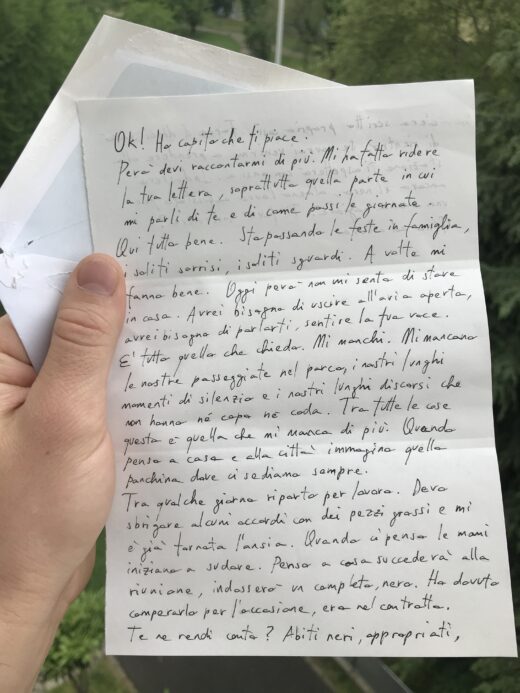 Ok! Ho capito che ti piace.
Però devi raccontarmi di più. Mi ha fatto ridere
la tua lettera, soprattutto quella parte in cui
mi parli di te e di come passi le giornate.
Qui tutto bene. Sto passando le feste in famiglia,
i soliti sorrisi, i soliti sguardi. A volte mi
fanno bene. Oggi però non mi sento di stare
in casa. Avrei bisogno di uscire all'aria aperta,
avrei bisogno di parlarti, sentire la tua voce.
E' tutto quello che chiedo. Mi manchi. Mi mancano
le nostre passeggiate nel parco, i nostri lunghi
momenti di silenzio e i nostri lunghi discorsi che
non hanno né capo né coda. Tra tutte le cose
questa è quella che mi manca di più. Quando
penso a casa e alla città immagino quella
panchina dove ci sediamo sempre.
Tra qualche giorno riparto per lavoro. Devo
sbrigare alcuni accordi con dei pezzi grossi e mi
è già tornata l'ansia. Quando ci penso le mani
iniziano a sudare. Penso a cosa succederà alla
riunione, indosserò un completo, nero. Ho dovuto
comperarlo per l'occasione, era nel contratto.
Te ne rendi conto? Abiti neri, appropriati,